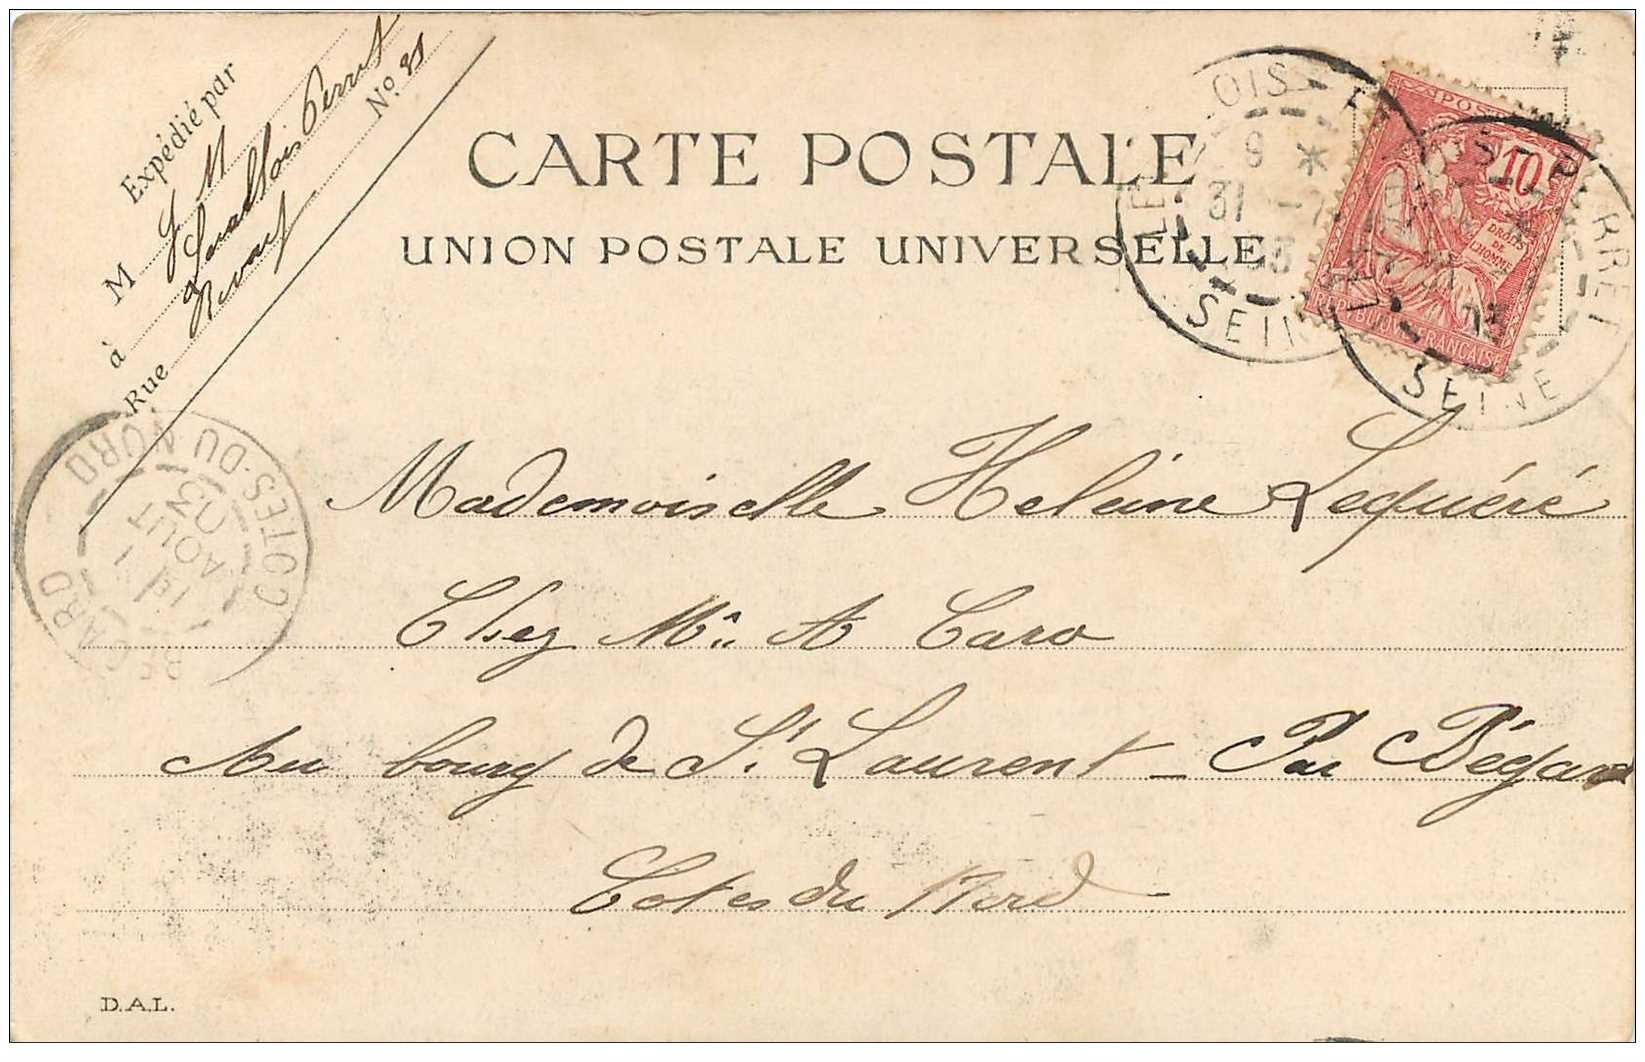 Expédié par
M J M
à Levallois Perret
Rue Rivay No 81
CARTE POSTALE
UNION POSTALE UNIVERSELLE
LEVALLOIS-PERRET
9 *
31 -7
03
SEINE
POSTES
10
DROITS
DE
L'HOMME
REPUBLIQUE FRANÇAISE
LEVALLOIS-PERRET
SEINE
BEGARD
COTES-DU-NORD
1
AOUT
03
Mademoiselle Heleine Lequéré
Chez Mr A Caro
Au bourg de St Laurent - Par Bégard
Cotes du Nord
D.A.L.